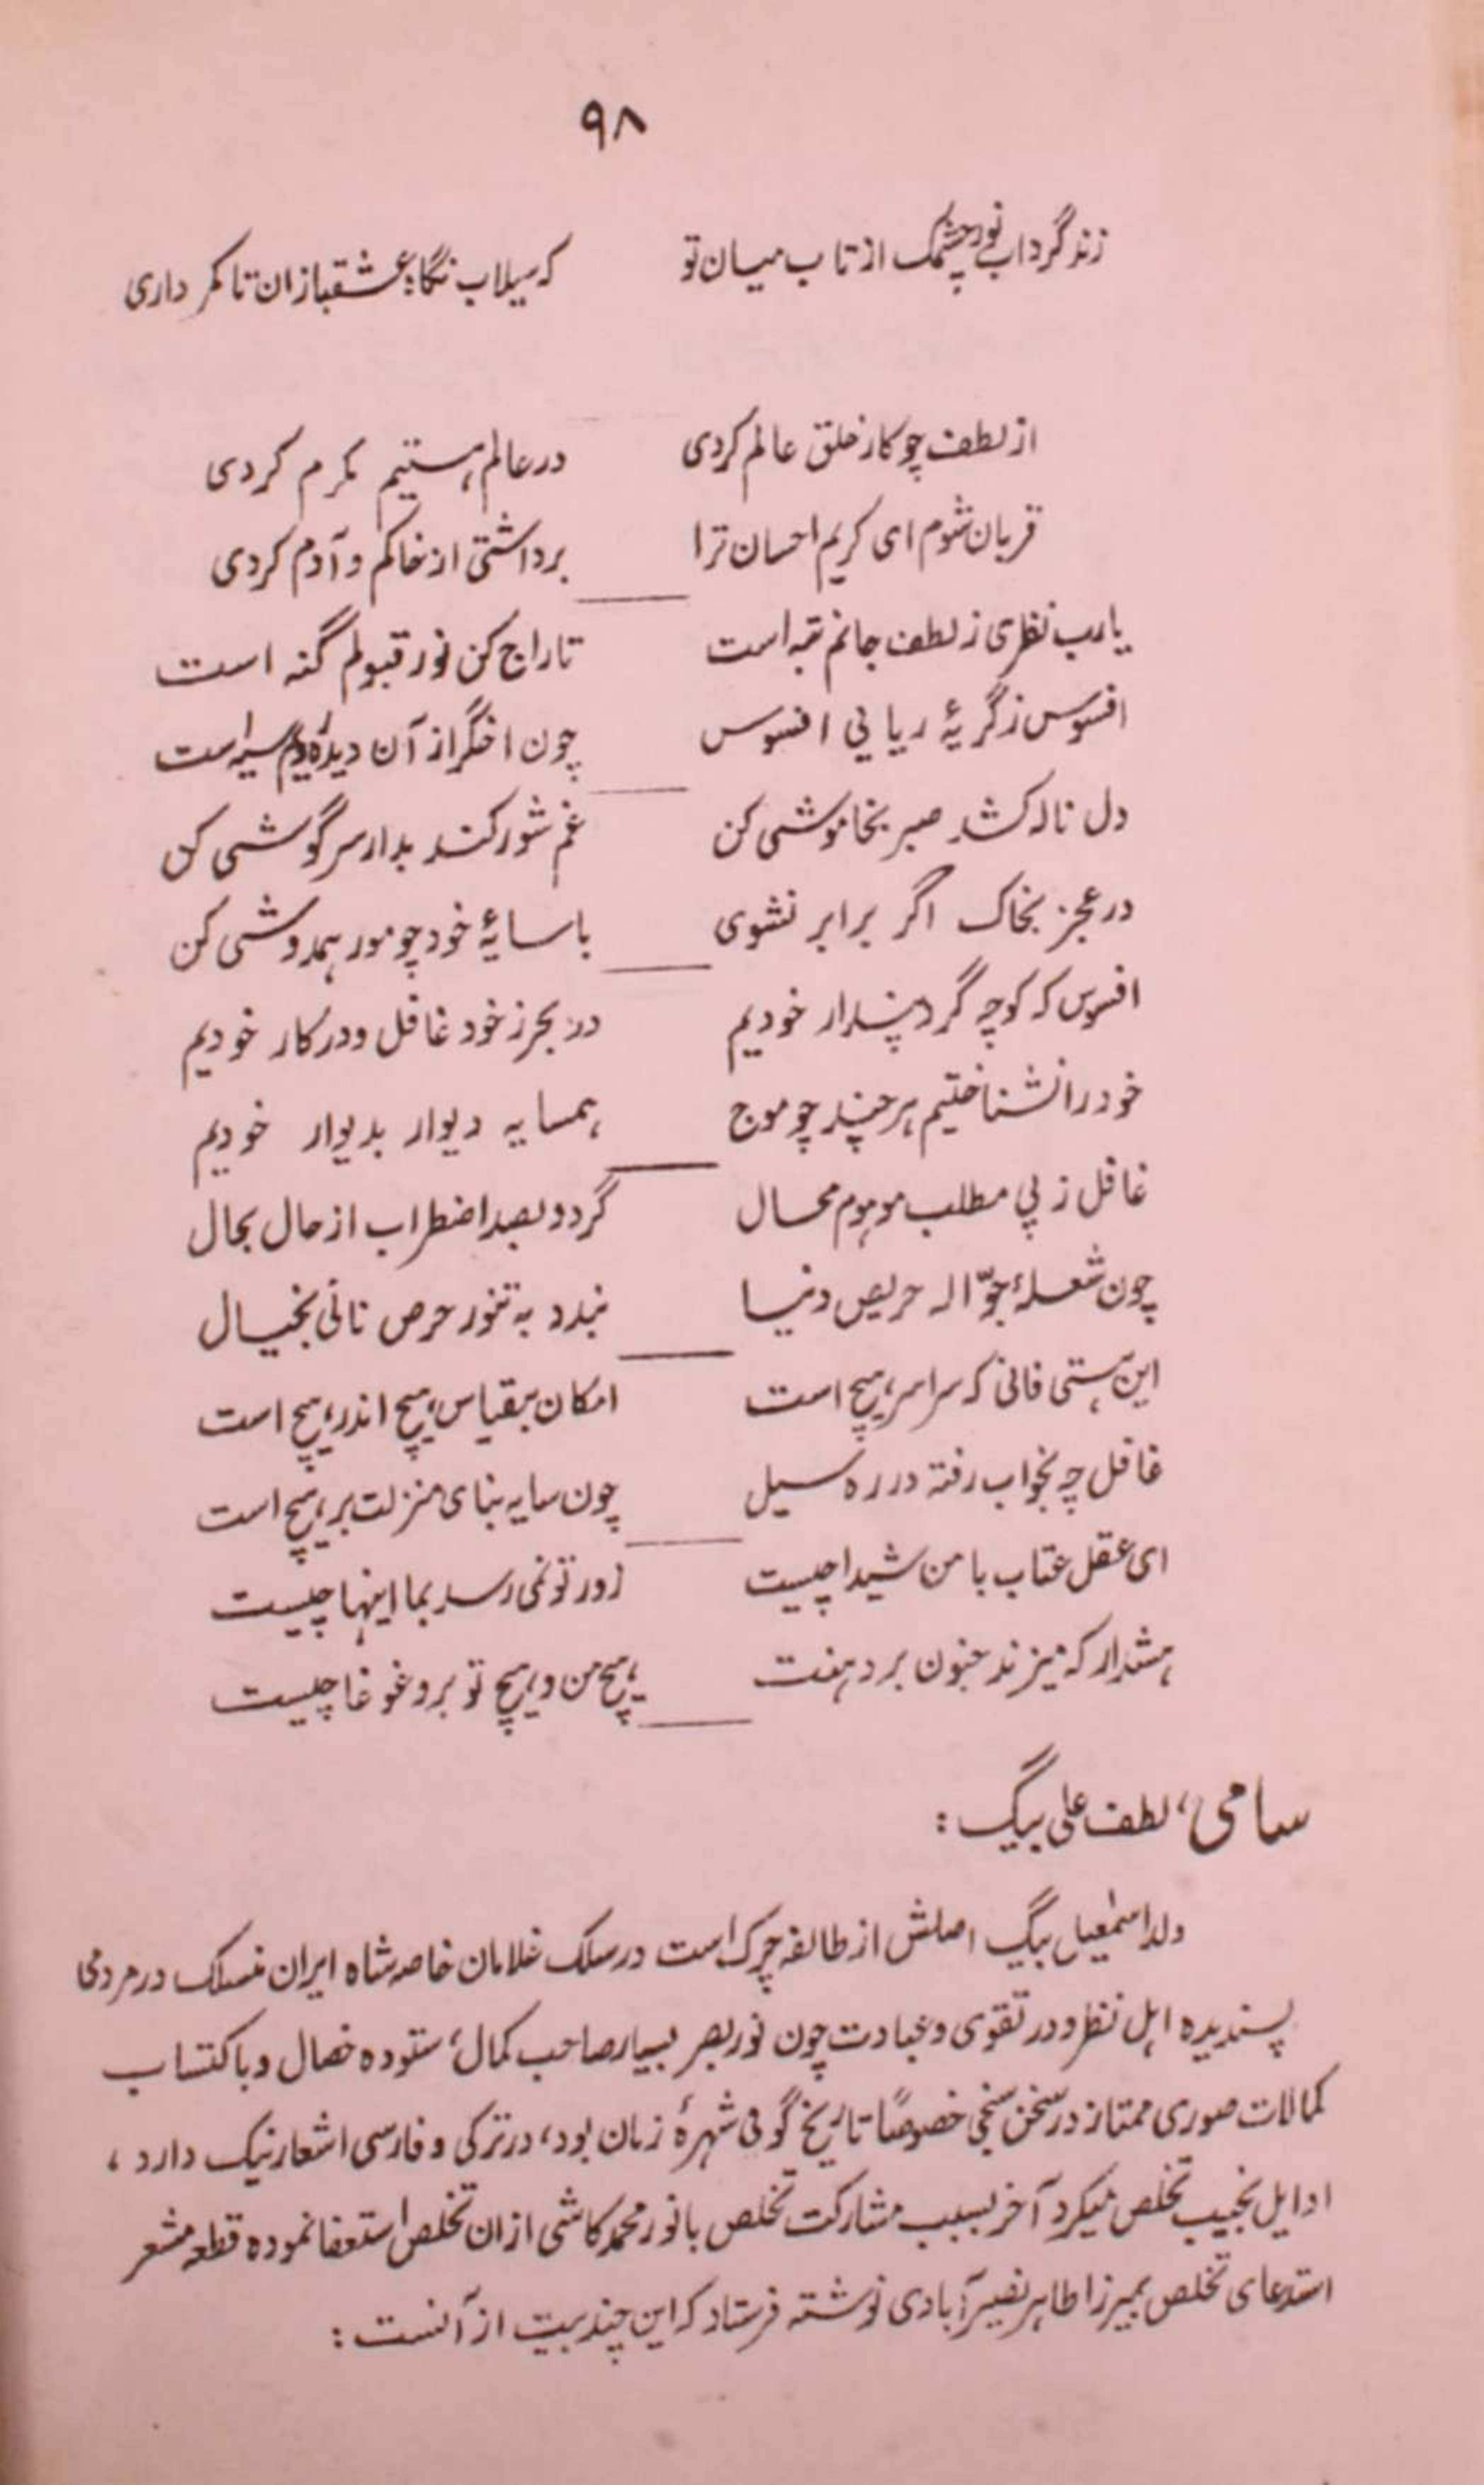 ۹۸
زند گرداب نور چشمک از تاب میان تو که سیلاب نگاه عشقبازان تا کمر داری
از لطف چو کار خلق عالم کردی در عالم هستیم مکرم کردی
قربان شوم ای کریم احسان ترا برداشتی از خاکم و آدم کردی
یارب نظری ز لطف جانم تبه است تاراج کن نور قبولم گنه است
افسوس ز گریهٔ ریایی افسوس چون اخگر از آن دیده سیه است
دل ناله کشد صبر بخاموشی کن غم شور کند بدار سرگوشی کن
در عجز بخاک اگر برابر نشوی با سایهٔ خود چو مور همدوشی کن
افسوس که کوچه گرد پندار خودیم در بحر ز خود غافل و در کار خودیم
خود را نشناختیم هر چند چو موج همسایه دیوار بدیوار خودیم
غافل ز پی مطلب موهوم محال گردد بصد اضطراب از حال بحال
چون شعلهٔ جوّاله حریص دنیا بندد به تنور حرص نانی بخیال
این هستی فانی که سراسر هیچ است امکان بقیاس هیچ اندر هیچ است
غافل چه بخواب رفتهٔ در ره سیل چون سایه بنای منزلت بر هیچ است
ای عقل عتاب با من شیدا چیست زور تو نمی رسد بما اینها چیست
هشدار که میزند جنون بر دهنت هیچ من و هیچ تو برو غوغا چیست
سامی، لطف علی بیگ :
ولد اسمٰعیل بیگ اصلش از طایفه چرکس است در سلک غلامان خاصه شاه ایران منسلک در مردمی
پسندیده اهل نظر و در تقوی و عبادت چون نور بصر بسیار صاحب کمال، ستوده خصال و باکتساب
کمالات صوری ممتاز در سخن سنجی خصوصاً تاریخ گوئی شهرهٔ زمان بود، در ترکی و فارسی اشعار نیک دارد ،
اوایل نجیب تخلص میکرد آخر بسبب مشارکت تخلص با نور محمد کاشی ازان تخلص استعفا نموده قطعه مشعر
استدعای تخلص بمیرزا طاهر نصیرآبادی نوشته فرستاد که این چند بیت از آنست :